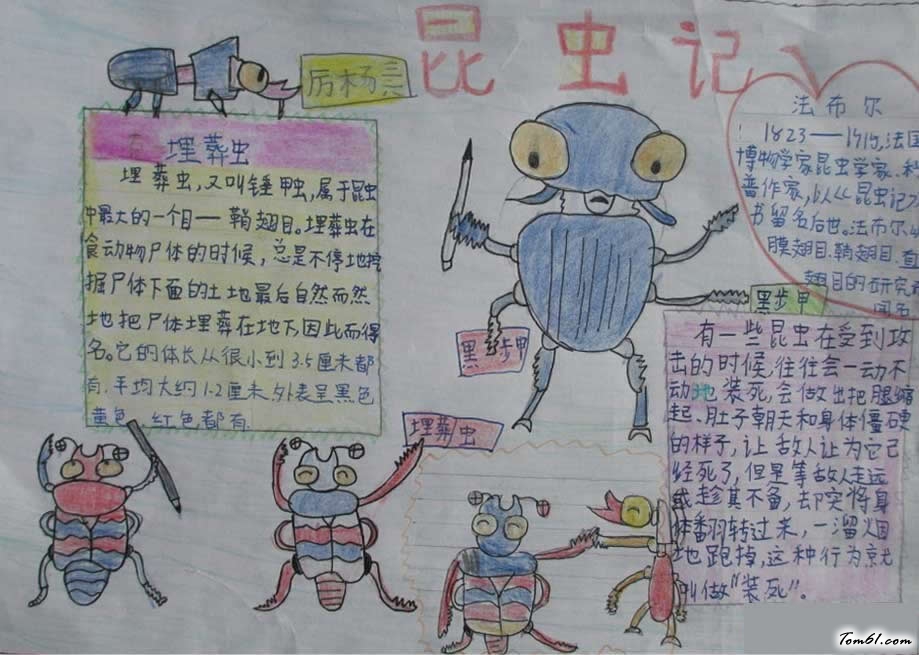 昆虫记
厉杨
埋葬虫
埋葬虫,又叫锤甲虫,属于昆虫
中最大的一个目——鞘翅目。埋葬虫在
食动物尸体的时候,总是不停地挖
掘尸体下面的土地最后自然而然
地把尸体埋葬在地下,因此而得
名。它的体长从很小到3.5厘米都
有.平均大约1.2厘米.外表呈黑色
黄色、红色都有
法布尔
1823——1915,法国
博物学家昆虫学家.科
普作家,以《昆虫记》
书留名后世。法布尔
膜翅目.鞘翅目.直
翅目的研究
闻名
黑步甲
黑步甲
埋葬虫
有一些昆虫在受到攻
击的时候,往往会一动不
动地装死,会做出把腿缩
起.肚子朝天和身体僵硬
的样子,让敌人让为它已
经死了,但是等敌人走远
或趁其不备,却突将身
体翻转过来,一溜烟
地跑掉,这种行为就
叫做“装死”。
Tom61.com